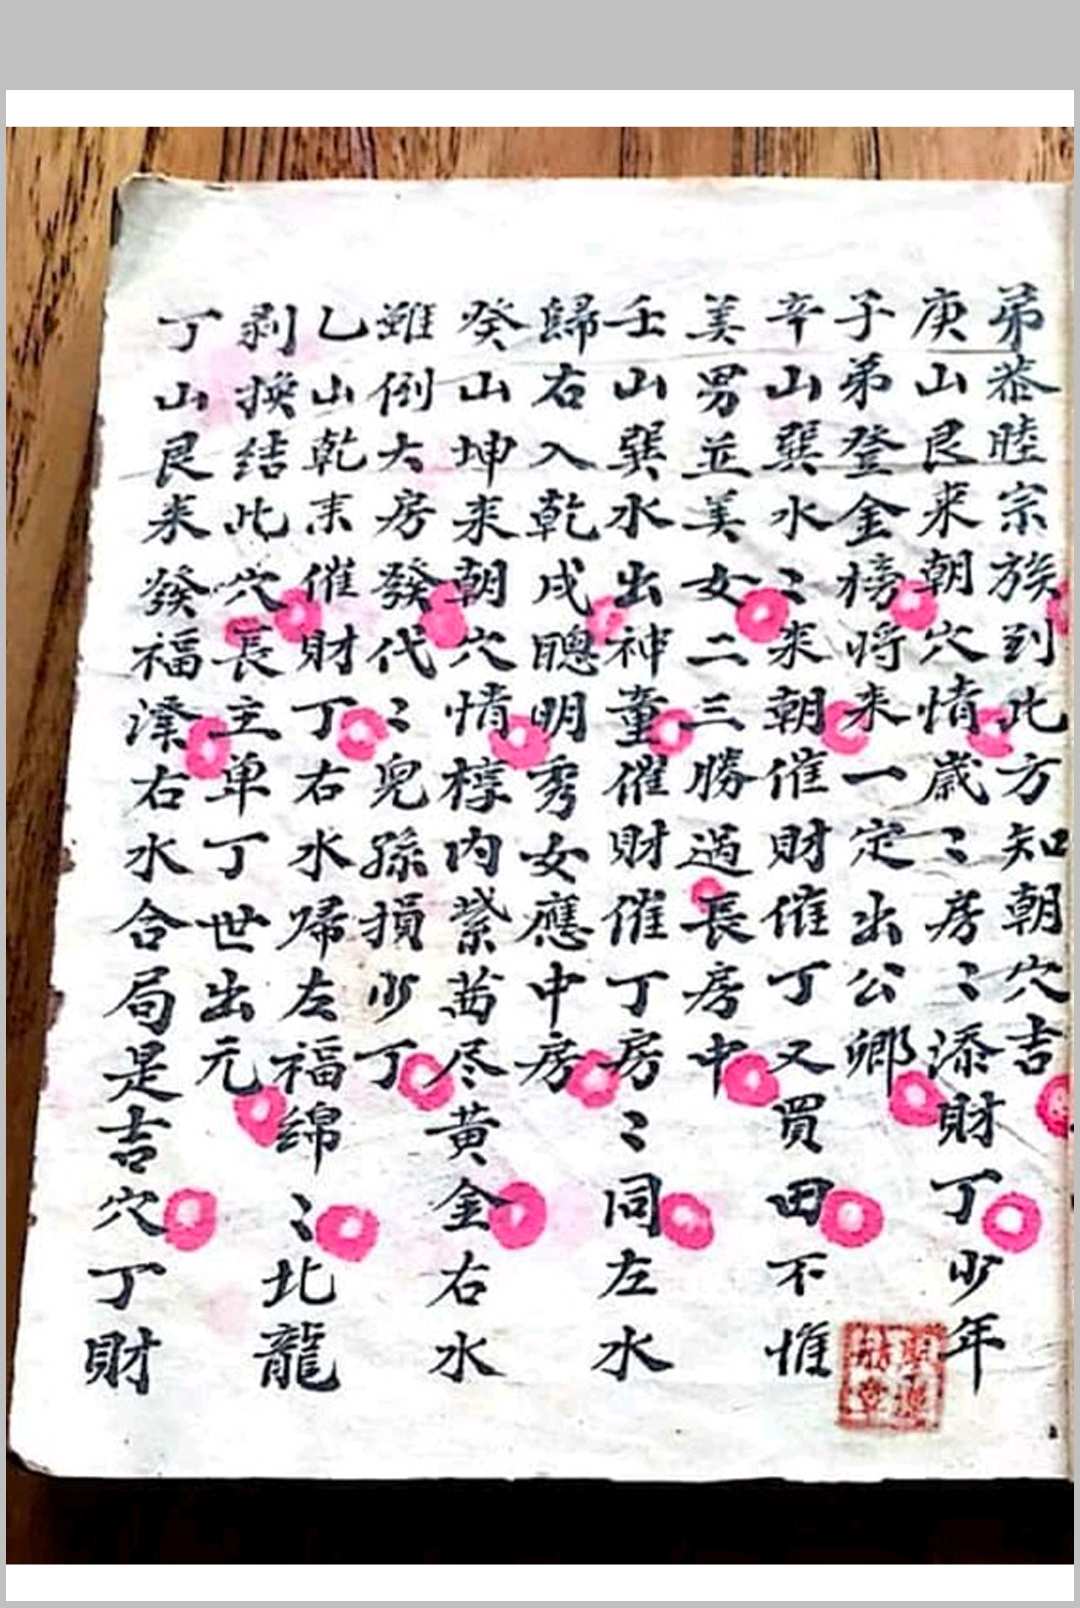 弟恭睦宗族到此方知朝穴吉
庚山艮来朝穴情歲〻房〻添財丁少年
子弟登金榜将来一定出公卿
辛山巽水〻来朝催財催丁又買田不惟
美男並美女二三勝過長房中
壬山巽水出神童催財催丁房〻同左水
歸右入乾戌聰明秀女應中房
癸山坤来朝穴情椁内紫茜尽黄金右水
雖倒大房發代〻兒孫損少丁
乙山乾末催財丁右水歸左福綿〻北龍
剥换结此穴長主单丁世出元
丁山艮来發福澤右水合局是吉穴丁財